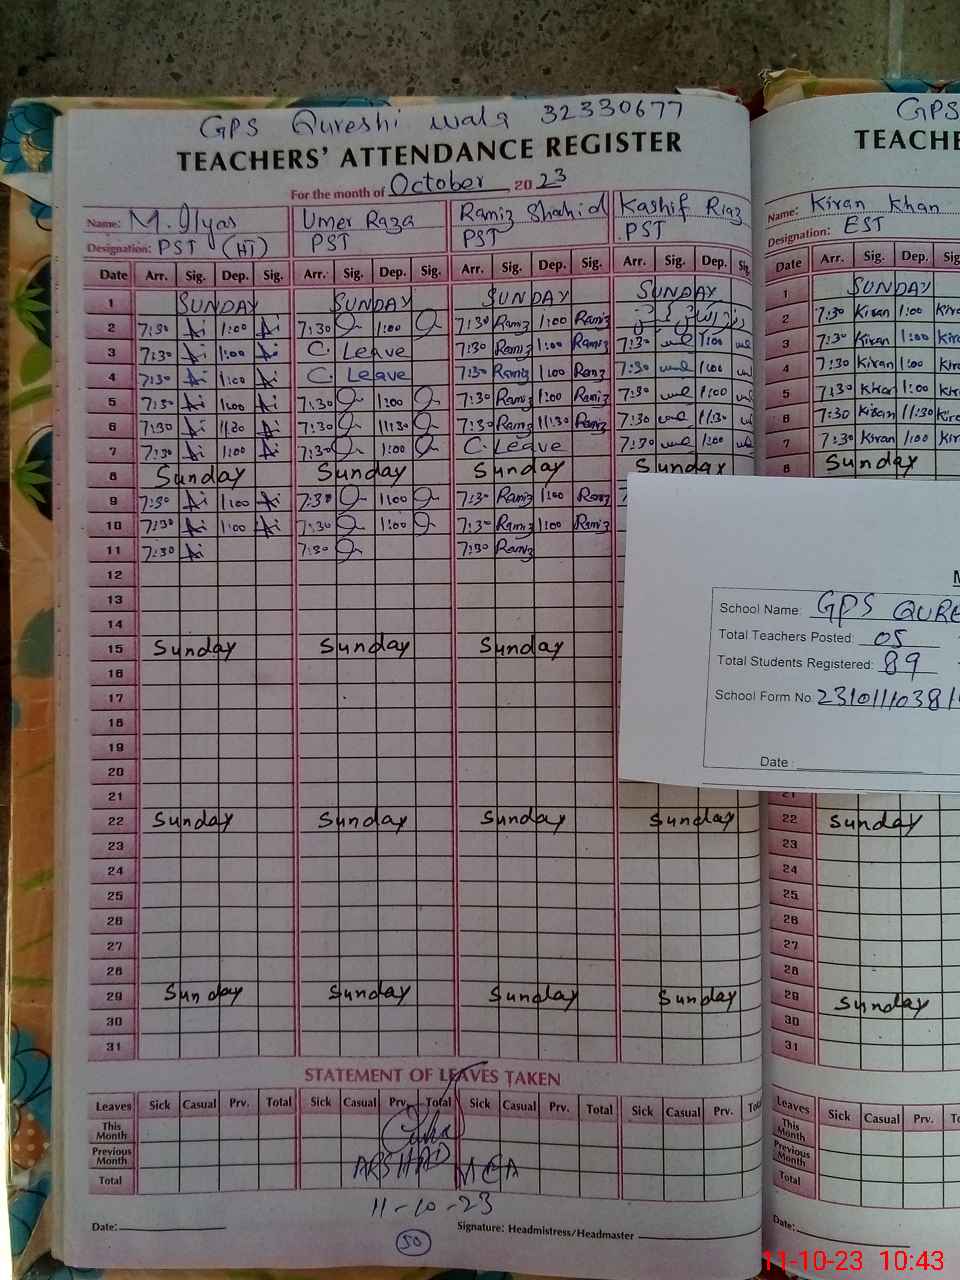 GPS Qureshi wala 32330677
TEACHERS' ATTENDANCE REGISTER
For the month of October 2023
Name: M. Ilyas Umer Raza Ramiz Shahid Kashif Riaz
Designation: PST (HT) PST PST PST
Date Arr. Sig. Dep. Sig. Arr. Sig. Dep. Sig. Arr. Sig. Dep. Sig. Arr. Sig. Dep. Sig.
1 SUNDAY SUNDAY SUNDAY SUNDAY
2 7:30 1:00 7:30 1:00 7:30 Ramiz 1:00 Ramiz
3 7:30 1:00 C. Leave 7:30 Ramiz 1:00 Ramiz 7:30 1:00
4 7:30 1:00 C. Leave 7:30 Ramiz 1:00 Ramiz 7:30 1:00
5 7:30 1:00 7:30 1:00 7:30 Ramiz 1:00 Ramiz 7:30 1:00
6 7:30 11:30 7:30 11:30 7:30 Ramiz 11:30 Ramiz 7:30 11:30
7 7:30 1:00 7:30 1:00 C. Leave 7:30 1:00
8 Sunday Sunday Sunday Sunday
9 7:30 1:00 7:30 1:00 7:30 Ramiz 1:00 Ramiz
10 7:30 1:00 7:30 1:00 7:30 Ramiz 1:00 Ramiz
11 7:30 7:30 7:30 Ramiz
12
13
14
15 Sunday Sunday Sunday
16
17
18
19
20
21
22 Sunday Sunday Sunday Sunday
23
24
25
26
27
28
29 Sunday Sunday Sunday Sunday
30
31
STATEMENT OF LEAVES TAKEN
Leaves Sick Casual Prv. Total Sick Casual Prv. Total Sick Casual Prv. Total Sick Casual Prv.
This Month
Previous Month
Total
ARSHAD MEA
11-10-23
Date:
Signature: Headmistress/Headmaster
50
GPS
TEACHE
Name: Kiran Khan
Designation: EST
Date Arr. Sig. Dep.
1 SUNDAY
2 7:30 Kiran 1:00
3 7:30 Kiran 1:00
4 7:30 Kiran 1:00
5 7:30 Kiran 1:00
6 7:30 Kiran 11:30
7 7:30 Kiran 1:00
8 Sunday
School Name: GPS QURE
Total Teachers Posted: 05
Total Students Registered: 89
School Form No. 2310111038
Date:
21
22 Sunday
23
24
25
26
27
28
29 Sunday
30
31
Leaves Sick Casual Prv.
This Month
Previous Month
Total
Date:
11-10-23 10:43